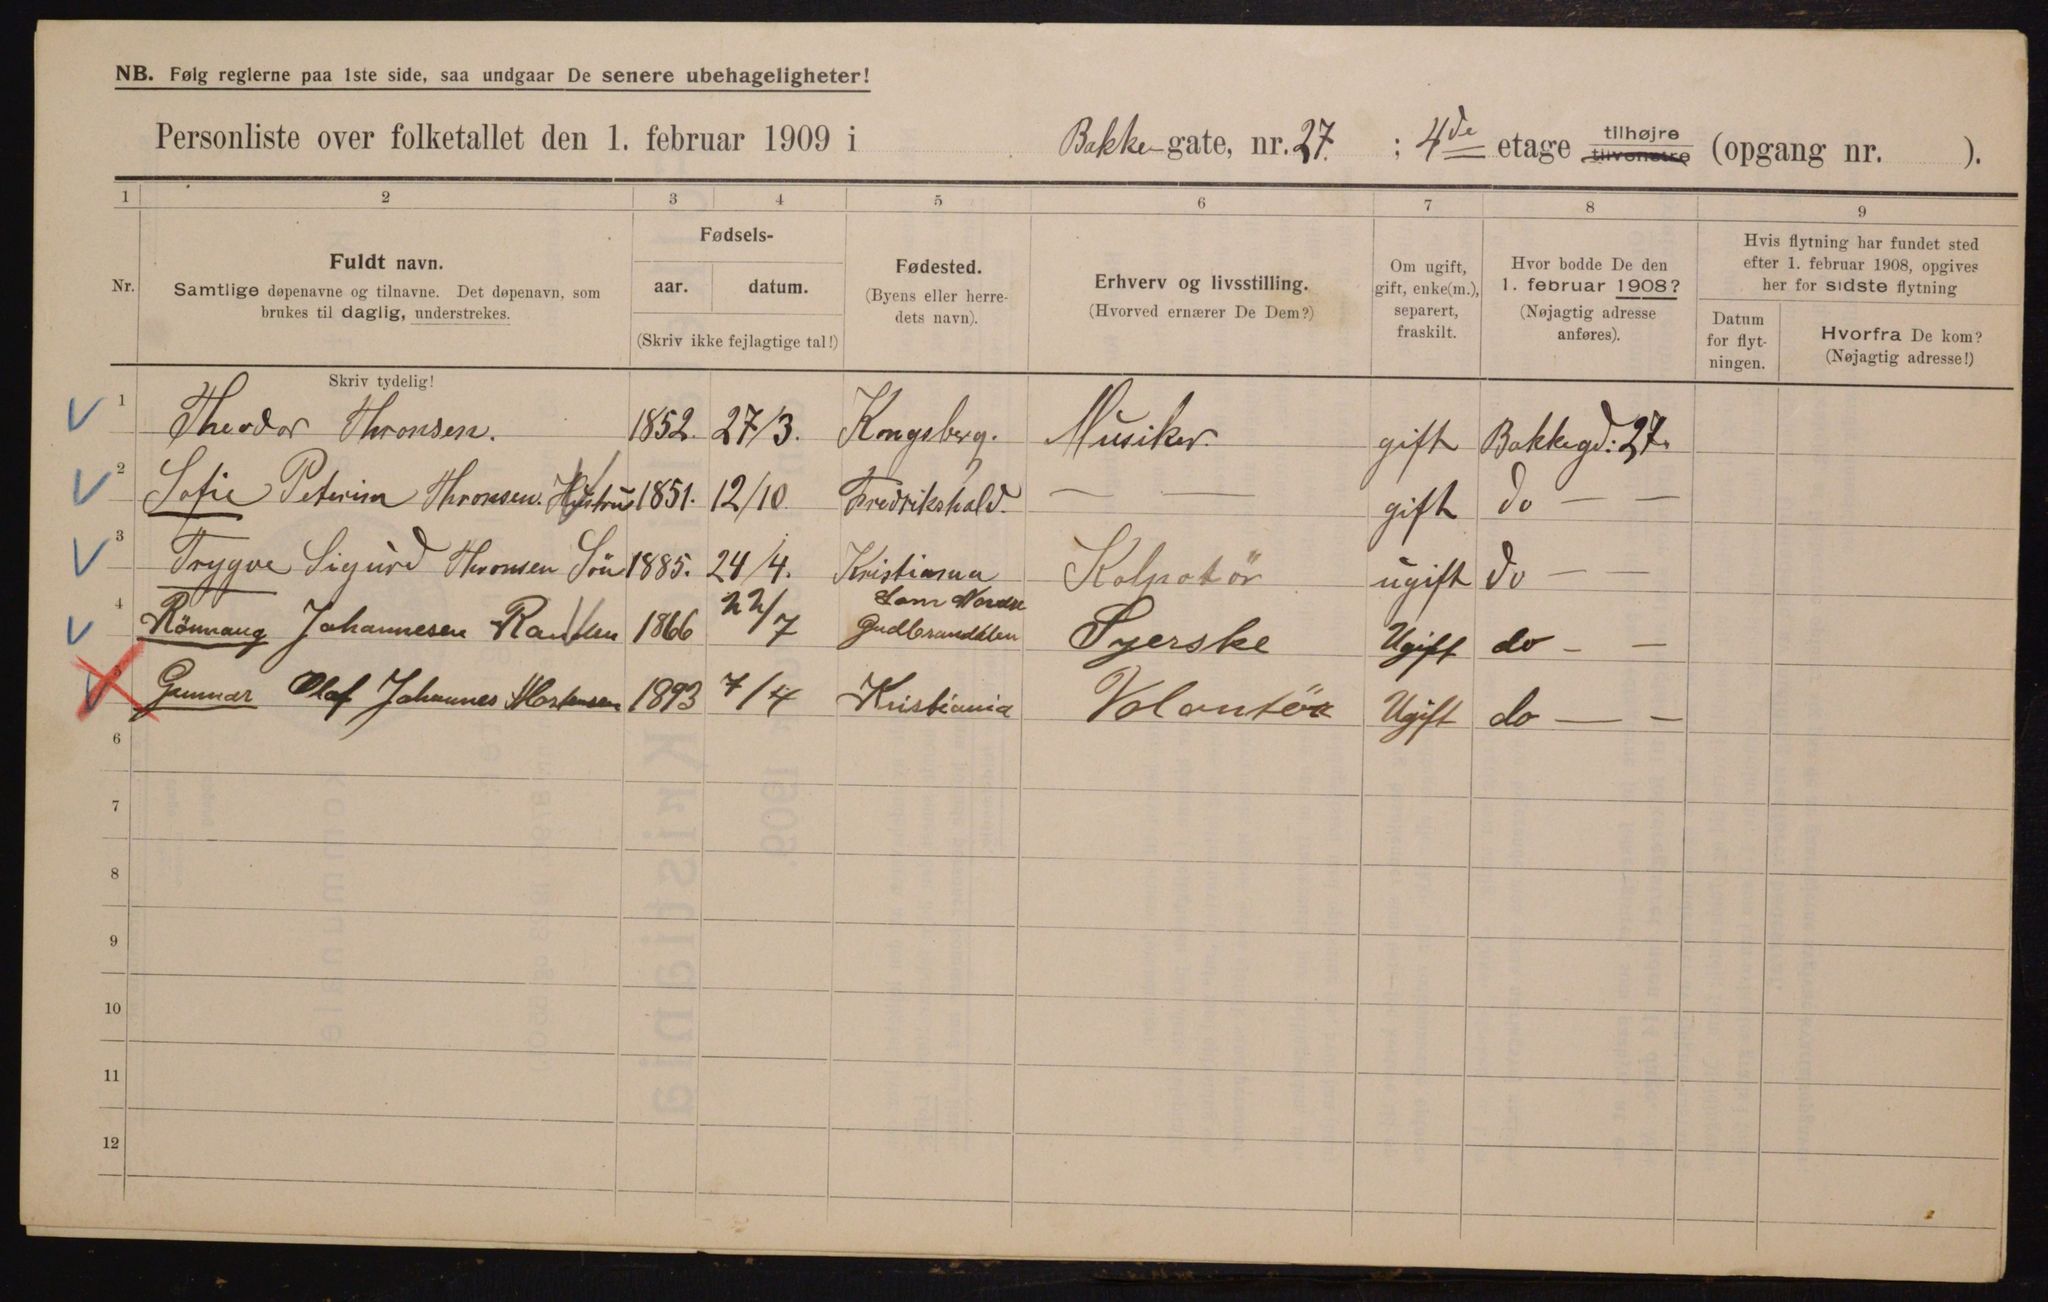 NB. Følg reglerne paa 1ste side, saa undgaar De senere ubehageligheter!
Personliste over folketallet den 1. februar 1909 i Bakke-gate, nr. 27. ; 4de etage tilhøjre tilvenstre (opgang nr. ).
1 2 3 4 5 6 7 8 9
Nr.
Fuldt navn.
Samtlige døpenavne og tilnavne. Det døpenavn, som
brukes til daglig, understrekes.
Skriv tydelig!
Fødsels-
aar. datum.
(Skriv ikke fejlagtige tal!)
Fødested.
(Byens eller herre-
dets navn).
Erhverv og livsstilling.
(Hvorved ernærer De Dem?)
Om ugift,
gift, enke(m.),
separert,
fraskilt.
Hvor bodde De den
1. februar 1908?
(Nøjagtig adresse
anføres).
Hvis flytning har fundet sted
efter 1. februar 1908, opgives
her for sidste flytning
Datum
for flyt-
ningen.
Hvorfra De kom?
(Nøjagtig adresse!)
1 Theodor Thronsen. 1852. 27/3. Kongsberg. Musiker. gift Bakkegd: 27.
2 Sofie Peterina Thronsen. Hustru 1851. 12/10. Fredrikshald. — — gift do — —
3 Trygve Sigurd Thronsen Sön 1885. 24/4. Kristiania Kolpotör ugift do — —
4 Rönnaug Johannesen 1866 22/7 Lom Nordre Gudbrandslen Syerske Ugift do — —
5 Gunnar Olaf Johannes Mortensen 1893 7/4 Kristiania Volontör Ugift do — —
6
7
8
9
10
11
12